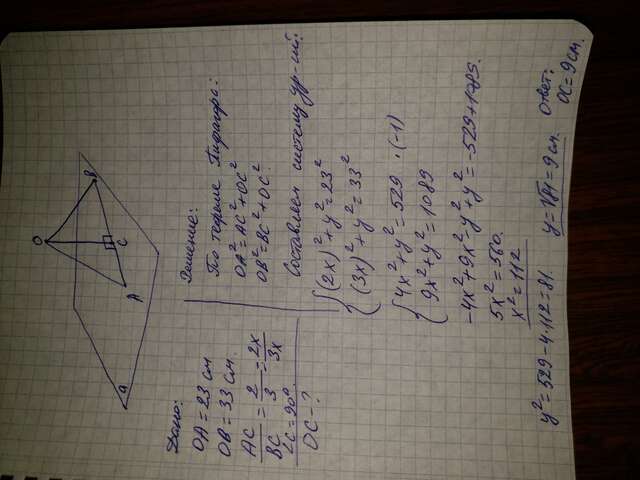 O
B
C
A
a
Дано:
OA = 23 см
OB = 33 см.
AC/BC = 2/3 = 2x/3x
∠C = 90°
OC - ?
Решение:
По тереме Пифагора:
OA² = AC² + OC²
OB² = BC² + OC²
Составляем систему ур-ий:
{ (2x)² + y² = 23²
(3x)² + y² = 33²
{ 4x² + y² = 529 · (-1)
9x² + y² = 1089
-4x² + 9x² - y² + y² = -529 + 1089.
5x² = 560.
x² = 112
y² = 529 - 4·112 = 81. y = √81 = 9 см. Ответ:
OC = 9 см.